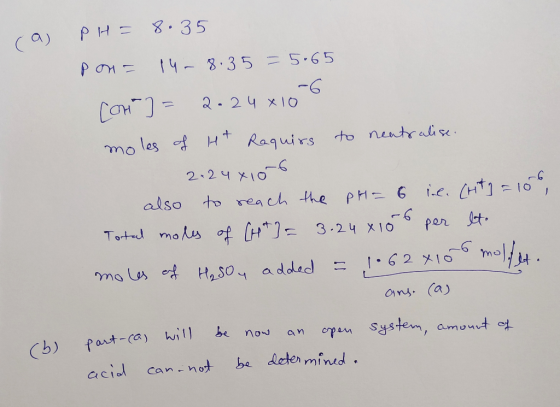 (a) PH = 8.35
POH = 14 - 8.35 = 5.65
[OH⁻] = 2.24 × 10⁻⁶
moles of H⁺ Raquirs to neutralise.
2.24 × 10⁻⁶
also to reach the PH = 6 i.e. [H⁺] = 10⁻⁶,
Total moles of [H⁺] = 3.24 × 10⁻⁶ per lt.
moles of H₂SO₄ added = 1.62 × 10⁻⁶ mol/lt.
ans. (a)
(b) part-(a) will be now an open system, amount of
acid can-not be determined.